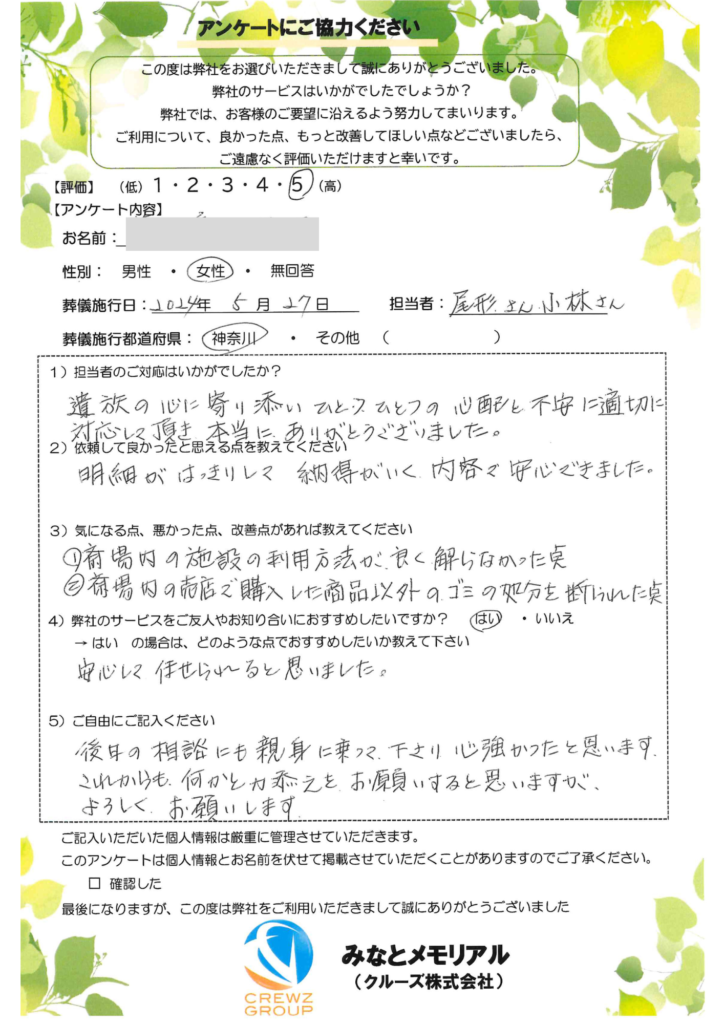 アンケートにご協力ください
この度は弊社をお選びいただきまして誠にありがとうございました。
弊社のサービスはいかがでしたでしょうか？
弊社では、お客様のご要望に沿えるよう努力してまいります。
ご利用について、良かった点、もっと改善してほしい点などございましたら、
ご遠慮なく評価いただけますと幸いです。
【評価】 （低）１・２・３・４・５（高）
【アンケート内容】
お名前：
性別： 男性 ・ 女性 ・ 無回答
葬儀施行日：2024年 5月 27日 担当者：尾形さん 小林さん
葬儀施行都道府県： 神奈川 ・ その他 （ ）
１）担当者のご対応はいかがでしたか？
遺族の心に寄り添い ひとつひとつの 心配と 不安に適切に
対応して頂き 本当に ありがとうございました。
２）依頼して良かったと思える点を教えてください
明細が はっきりして 納得がいく 内容で 安心できました。
３）気になる点、悪かった点、改善点があれば教えてください
①斎場内の施設の利用方法が 良く 解らなかった点
②斎場内の売店で購入した商品以外の ゴミの処分を断られた点
４）弊社のサービスをご友人やお知り合いにおすすめしたいですか？ はい ・いいえ
→ はい の場合は、どのような点でおすすめしたいか教えて下さい
安心して 任せられると思いました。
５）ご自由にご記入ください
後日の 相談にも 親身に乗って 下さり 心強かったと思います
これからも 何かと力添えを お願いすると思いますが、
よろしく お願いします
ご記入いただいた個人情報は厳重に管理させていただきます。
このアンケートは個人情報とお名前を伏せて掲載させていただくことがありますのでご了承ください。
☐ 確認した
最後になりますが、この度は弊社をご利用いただきまして誠にありがとうございました
みなとメモリアル
（クルーズ株式会社）
CREWZ
GROUP